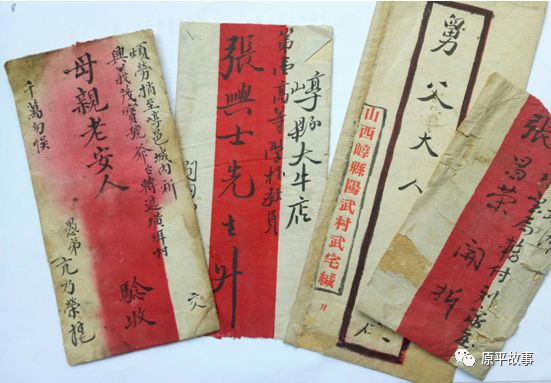 煩勞捎至崞邑城內祈
興義茂寶號
爺台轉遞璜珥村
母親老安人
驗收
千萬勿悮
愚弟
榮托
崞縣大牛店
第壹高等學校教員
張興士先生外
交
舅父大人
山西崞縣陽武村武宅緘
月
張
昌榮
開拆
原平故事